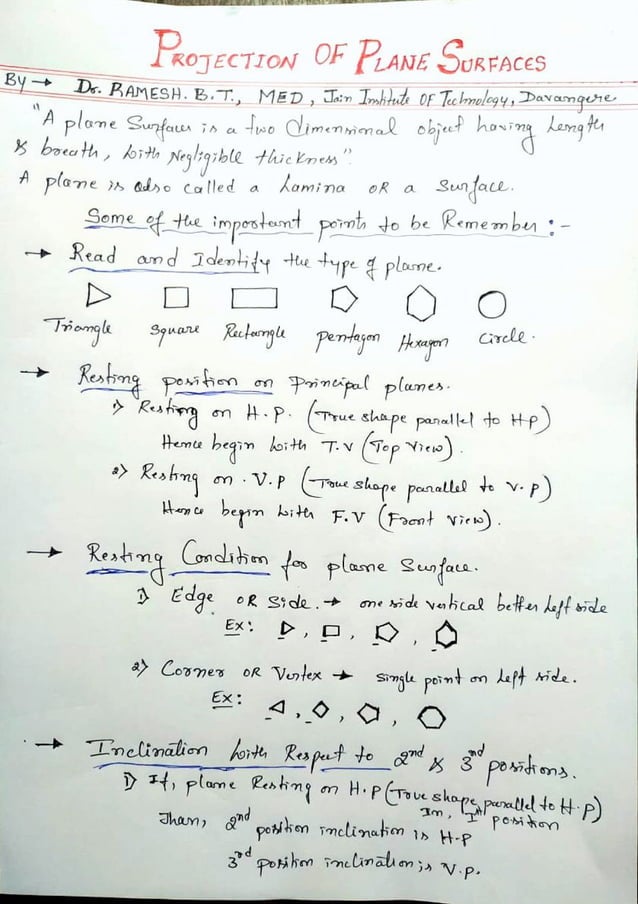 PROJECTION OF PLANE SURFACES
By → Dr. RAMESH. B.T., MED, Jain Institute OF Technology, Davangere
"A plane Surfaces is a two Dimensional object having Length
& breath, with Negligible thickness".
A plane is also called a Lamina OR a Surface.
Some of the important points to be Remember :-
→ Read and Identify the type of plane.
Triangle Square Rectangle Pentagon Hexagon Circle.
→ Resting position on Principal planes.
1) Resting on H.P. (True shape parallel to H.P)
Hence begin with T.V (Top View).
2) Resting on V.P (True shape parallel to V.P)
Hence begin with F.V (Front View).
→ Resting Condition for plane Surface.
1) Edge OR Side. → one side vertical better Left side
Ex:
2) Corner OR Vertex → Single point on Left side.
Ex:
→ Inclination with Respect to 2nd & 3nd positions.
1) If, plane Resting on H.P (True shape parallel to H.P)
Im, Ist position
Than, 2nd position inclination is H.P
3rd position inclination is V.P.